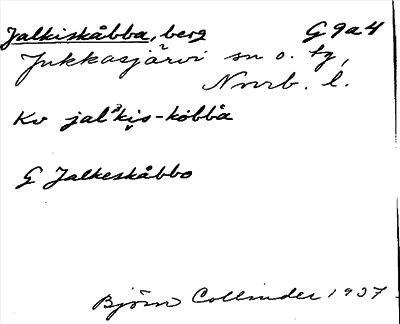 Jalkiskåbba, berg G 9a4
Jukkasjärvi sn o. tg,
Norrb. l.
Kv jalˀki̬s-kåbbå
G Jalkeskåbbo
Björn Collinder 1937